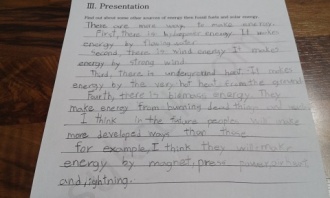 III. Presentation
Find out about some other sources of energy from fossil fuels and solar energy.
There are more ways to make energy.
First, there is hydrogenic energy. It makes
energy by flowing water.
Second, there is wind energy. It makes
energy by strong wind.
Third, there is underground heat. It makes
energy by the very hot heat the ground
Fourth, there is biomass energy. They
make energy from burning dead things
I think in the future people
more developed ways than those
for example, I think they will make
energy by magnet, press,
and lightning.